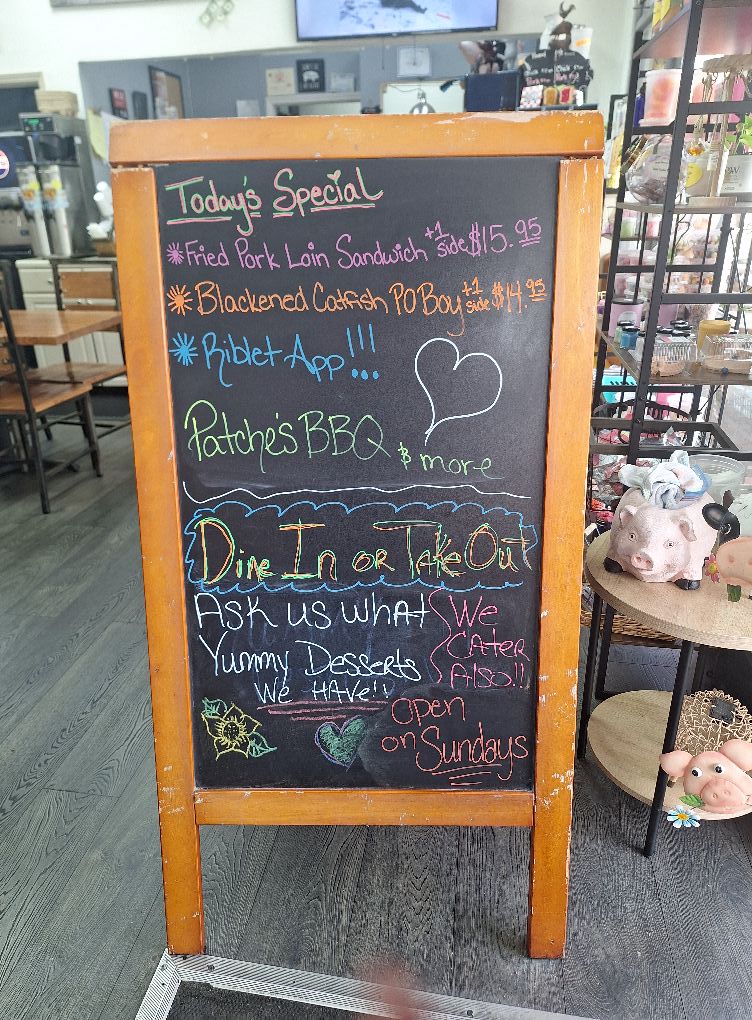 Today's Special
Fried Pork Loin Sandwich +1 side $15.95
Blackened Catfish PO Boy +1 side $14.95
Riblet App!!!
Patche's BBQ & more
Dine In or Take Out
Ask us what
Yummy Desserts
We Have!!
We
Cater
Also!!
Open
on Sundays